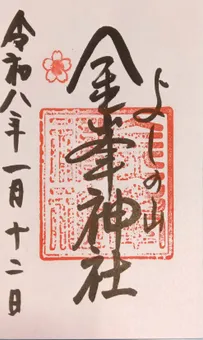 よしの山
金峯神社
令和八年一月十二日